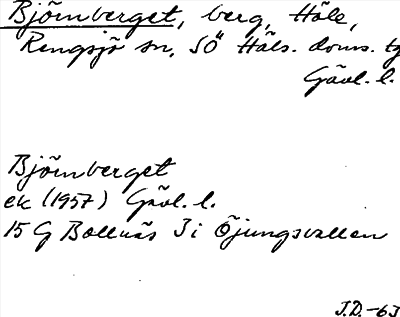 Björnberget, berg, Höle,
Rengsjö sn, SÖ Häls. doms. tg
Gävl. l.
Björnberget
ek (1957) Gävl. l.
15 G Bollnäs 3 i Öjungsvallen
J.D. -63